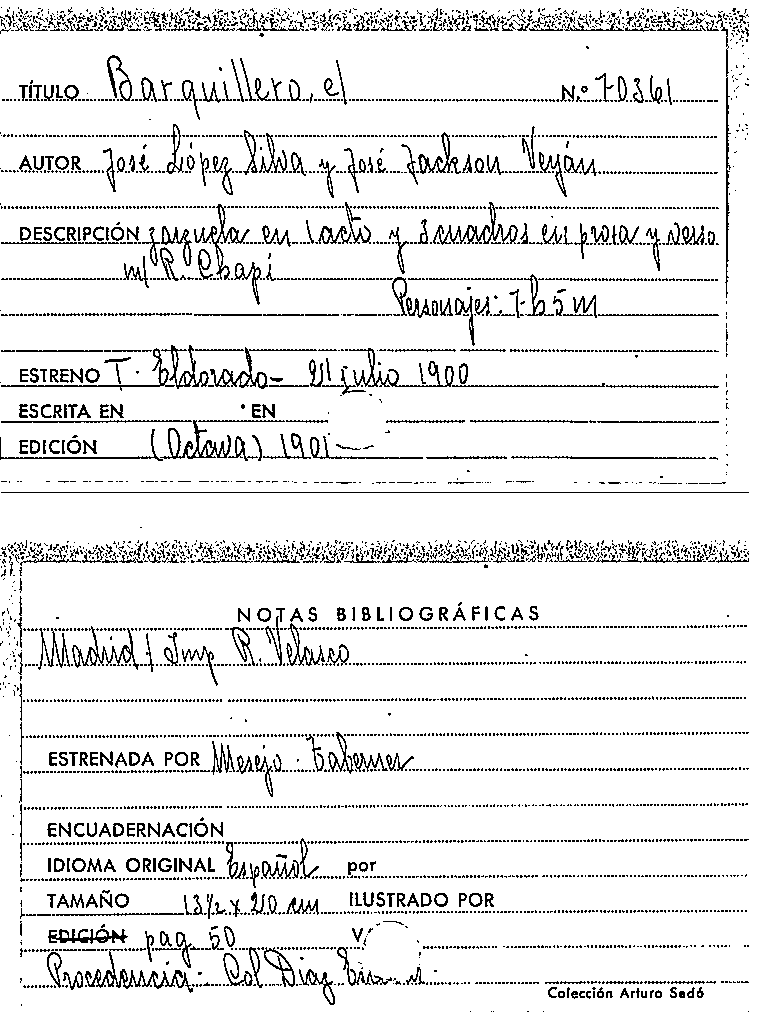 TÍTULO Barquillero, el N.º 70361
AUTOR José López Silva y José Jackson Veyán
DESCRIPCIÓN zarzuela en 1 acto y 3 cuadros en prosa y verso
m/ R. Chapí
Personajes: 7 h 5 m
ESTRENO T. Eldorado - 21 julio 1900
ESCRITA EN EN
EDICIÓN (Octava) 1901
NOTAS BIBLIOGRÁFICAS
Madrid / Imp R. Velasco
ESTRENADA POR Mesejo - Taberner
ENCUADERNACIÓN
IDIOMA ORIGINAL Español por
TAMAÑO 13½ x 20 cm ILUSTRADO POR
EDICIÓN pag 50 V
Procedencia - Col Diaz
Colección Arturo Sedó